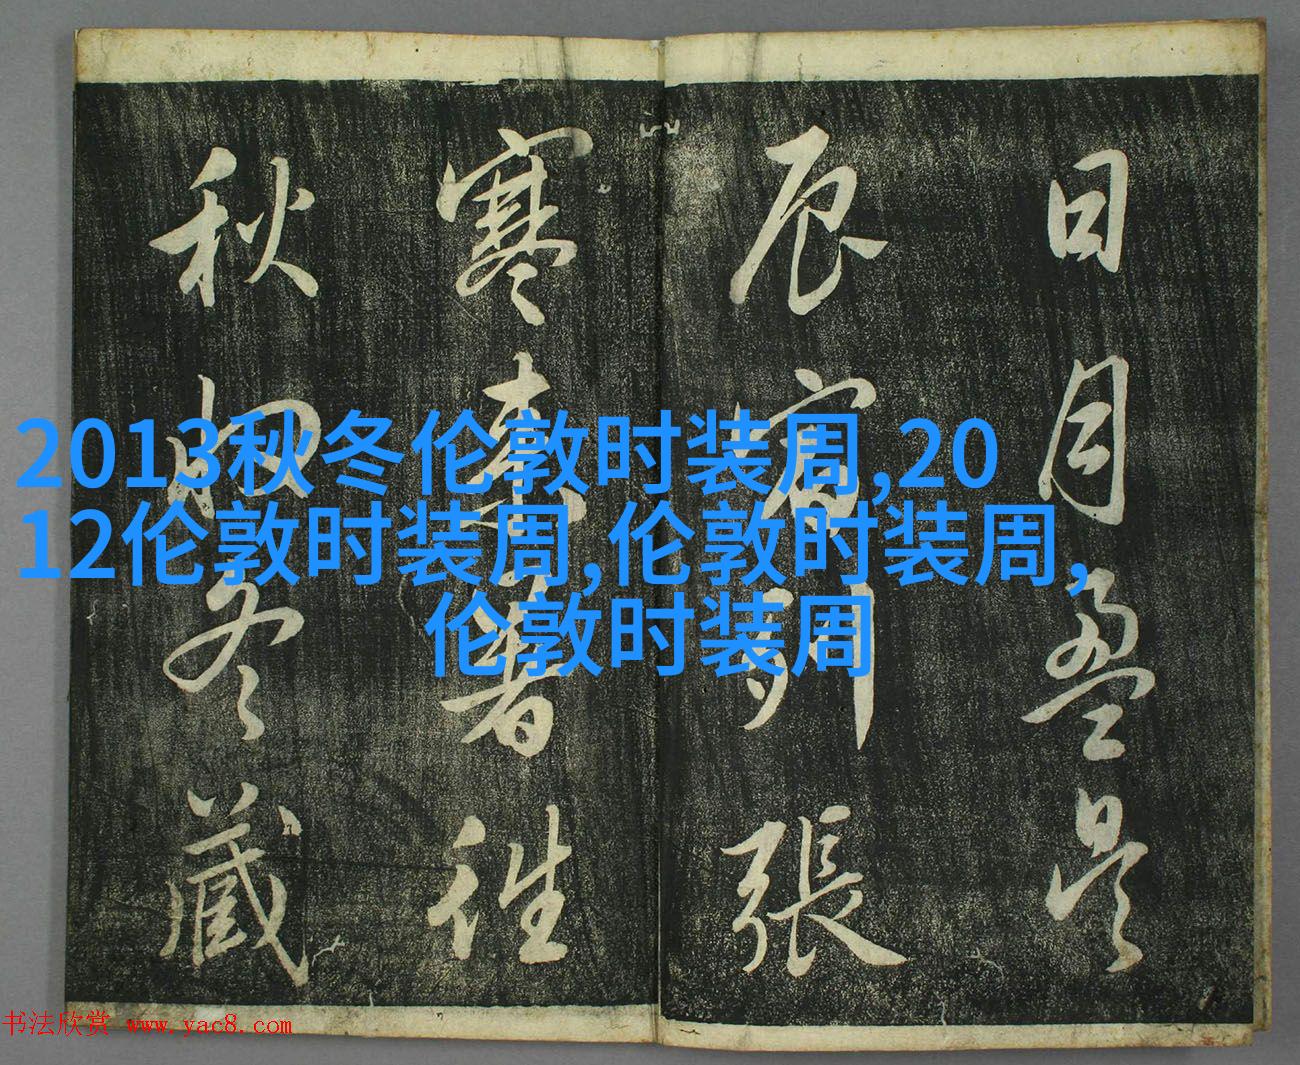 日月盈昃
辰宿列張
寒來暑往
秋收冬藏
2013秋冬伦敦时装周,20
12伦敦时装周,伦敦时装周,
伦敦时装周
书法欣赏 www.yac8.com